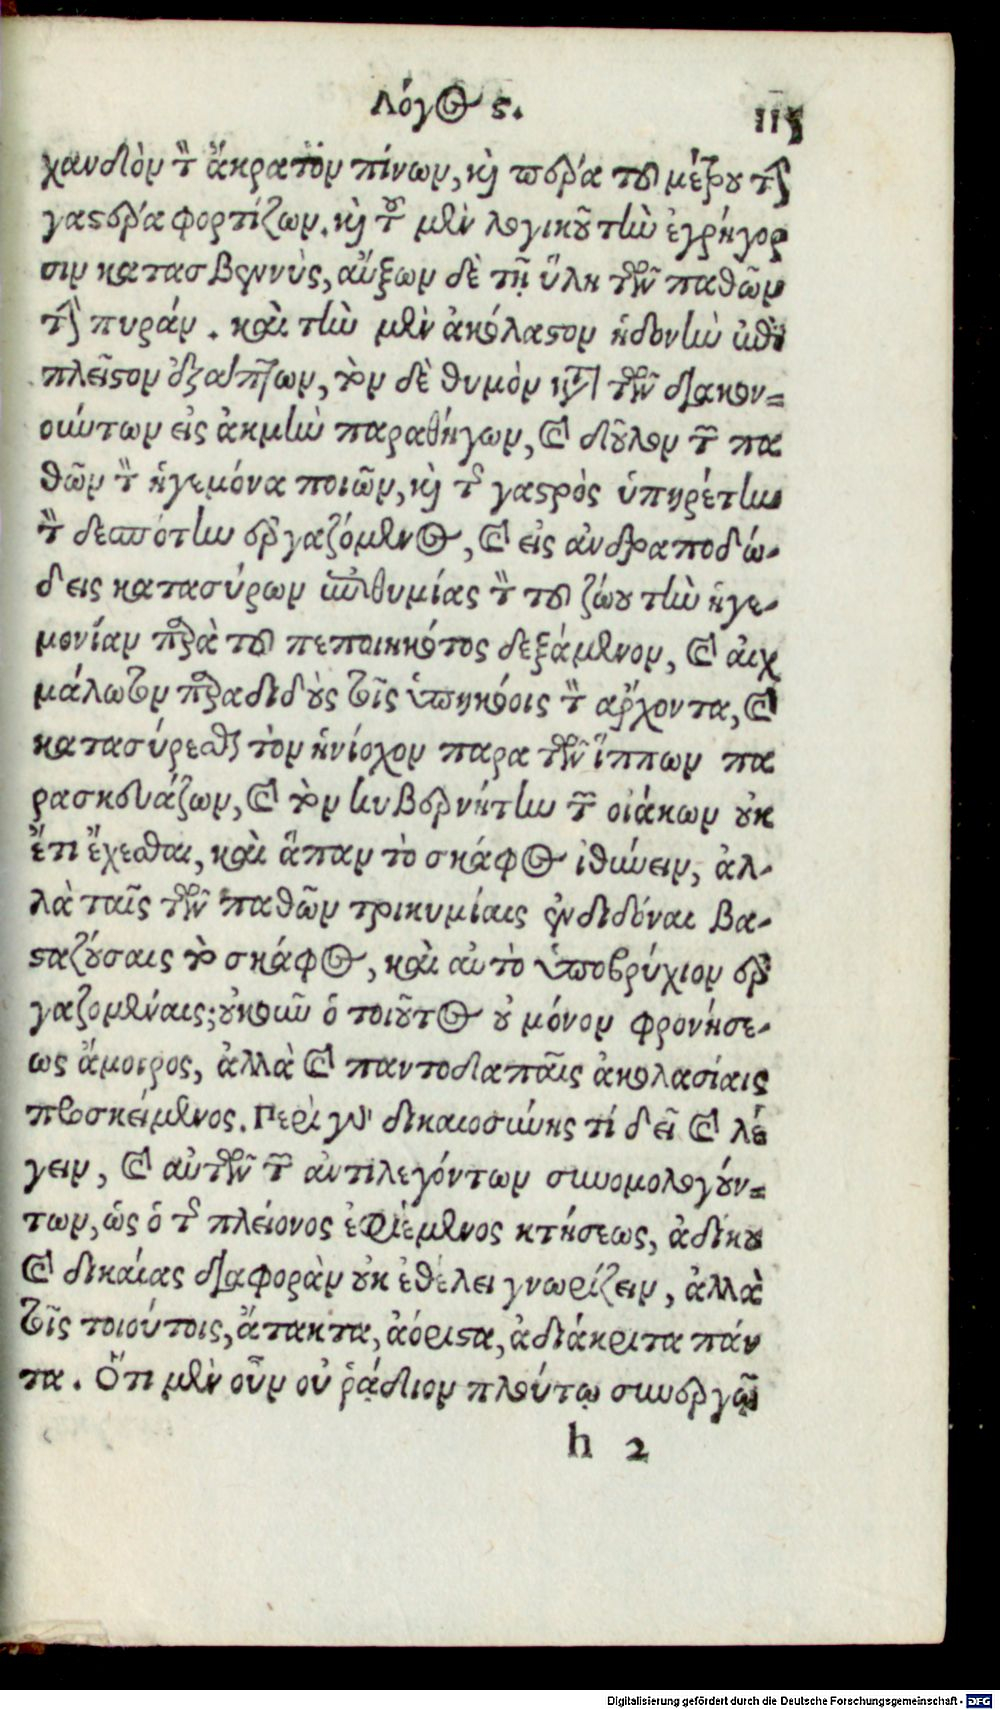 Λόγος ϛ.
115
χανδὸν τὸν ἄκρατον πίνων, καὶ πέρα τοῦ μέτρου τὴν
γαστέρα φορτίζων. καὶ τοῦ μὲν λογικοῦ τὴν ἐγρήγορ
σιν κατασβεννὺς, αὔξων δὲ τῇ ὕλῃ τῶν παθῶν
τὴν πυράν. καὶ τὴν μὲν ἀκόλαστον ἡδονὴν ἐπὶ
πλεῖστον ἐξάπτων, τὸν δὲ θυμὸν κατὰ τῶν διακον=
ούντων εἰς ἀκμὴν παραθήγων, καὶ δοῦλον τῶν πα
θῶν τὸν ἡγεμόνα ποιῶν, καὶ τῆς γαστρὸς ὑπηρέτην
τὸν δεσπότην ἐργαζόμενος, καὶ εἰς ἀνδραποδώ-
δεις κατασύρων ἐπιθυμίας τὸν τοῦ ζώου τὴν ἡγε-
μονίαν παρὰ τοῦ πεποιηκότος δεξάμενον, καὶ αἰχ
μάλωτον παραδιδοὺς τοῖς ὑπηκόοις τὸν ἄρχοντα, καὶ
κατασύρεσθαι τὸν ἡνίοχον παρα τῶν ἵππων πα
ρασκευάζων, καὶ τὸν κυβερνήτην τῶν οἰάκων οὐκ
ἔτι ἔχεσθαι, καὶ ἅπαν τὸ σκάφος ἰθύνειν, ἀλ-
λὰ ταῖς τῶν παθῶν τρικυμίαις ἐνδιδόναι βα-
σταζούσαις τὸ σκάφος, καὶ αὐτὸ ὑποβρύχιον ἐρ
γαζομέναις; οὐκοῦν ὁ τοιοῦτος οὐ μόνον φρονήσε-
ως ἄμοιρος, ἀλλὰ καὶ παντοδαπαῖς ἀκολασίαις
προσκείμενος. Περὶ γὰρ δικαιοσύνης τί δεῖ καὶ λέ
γειν, καὶ αὐτῶν τῶν ἀντιλεγόντων συνομολογούν=
των, ὡς ὁ τῆς πλείονος ἐφιέμενος κτήσεως, ἀδίκου
καὶ δικαίας διαφορὰν οὐκ ἐθέλει γνωρίζειν, ἀλλὰ
τοῖς τοιούτοις, ἄτακτα, ἀόριστα, ἀδιάκριτα πάν
τα. Ὅτι μὲν οὖν οὐ ῥᾴδιον πλούτῳ συνεργῷ
h 2
Digitalisierung gefördert durch die Deutsche Forschungsgemeinschaft - DFG